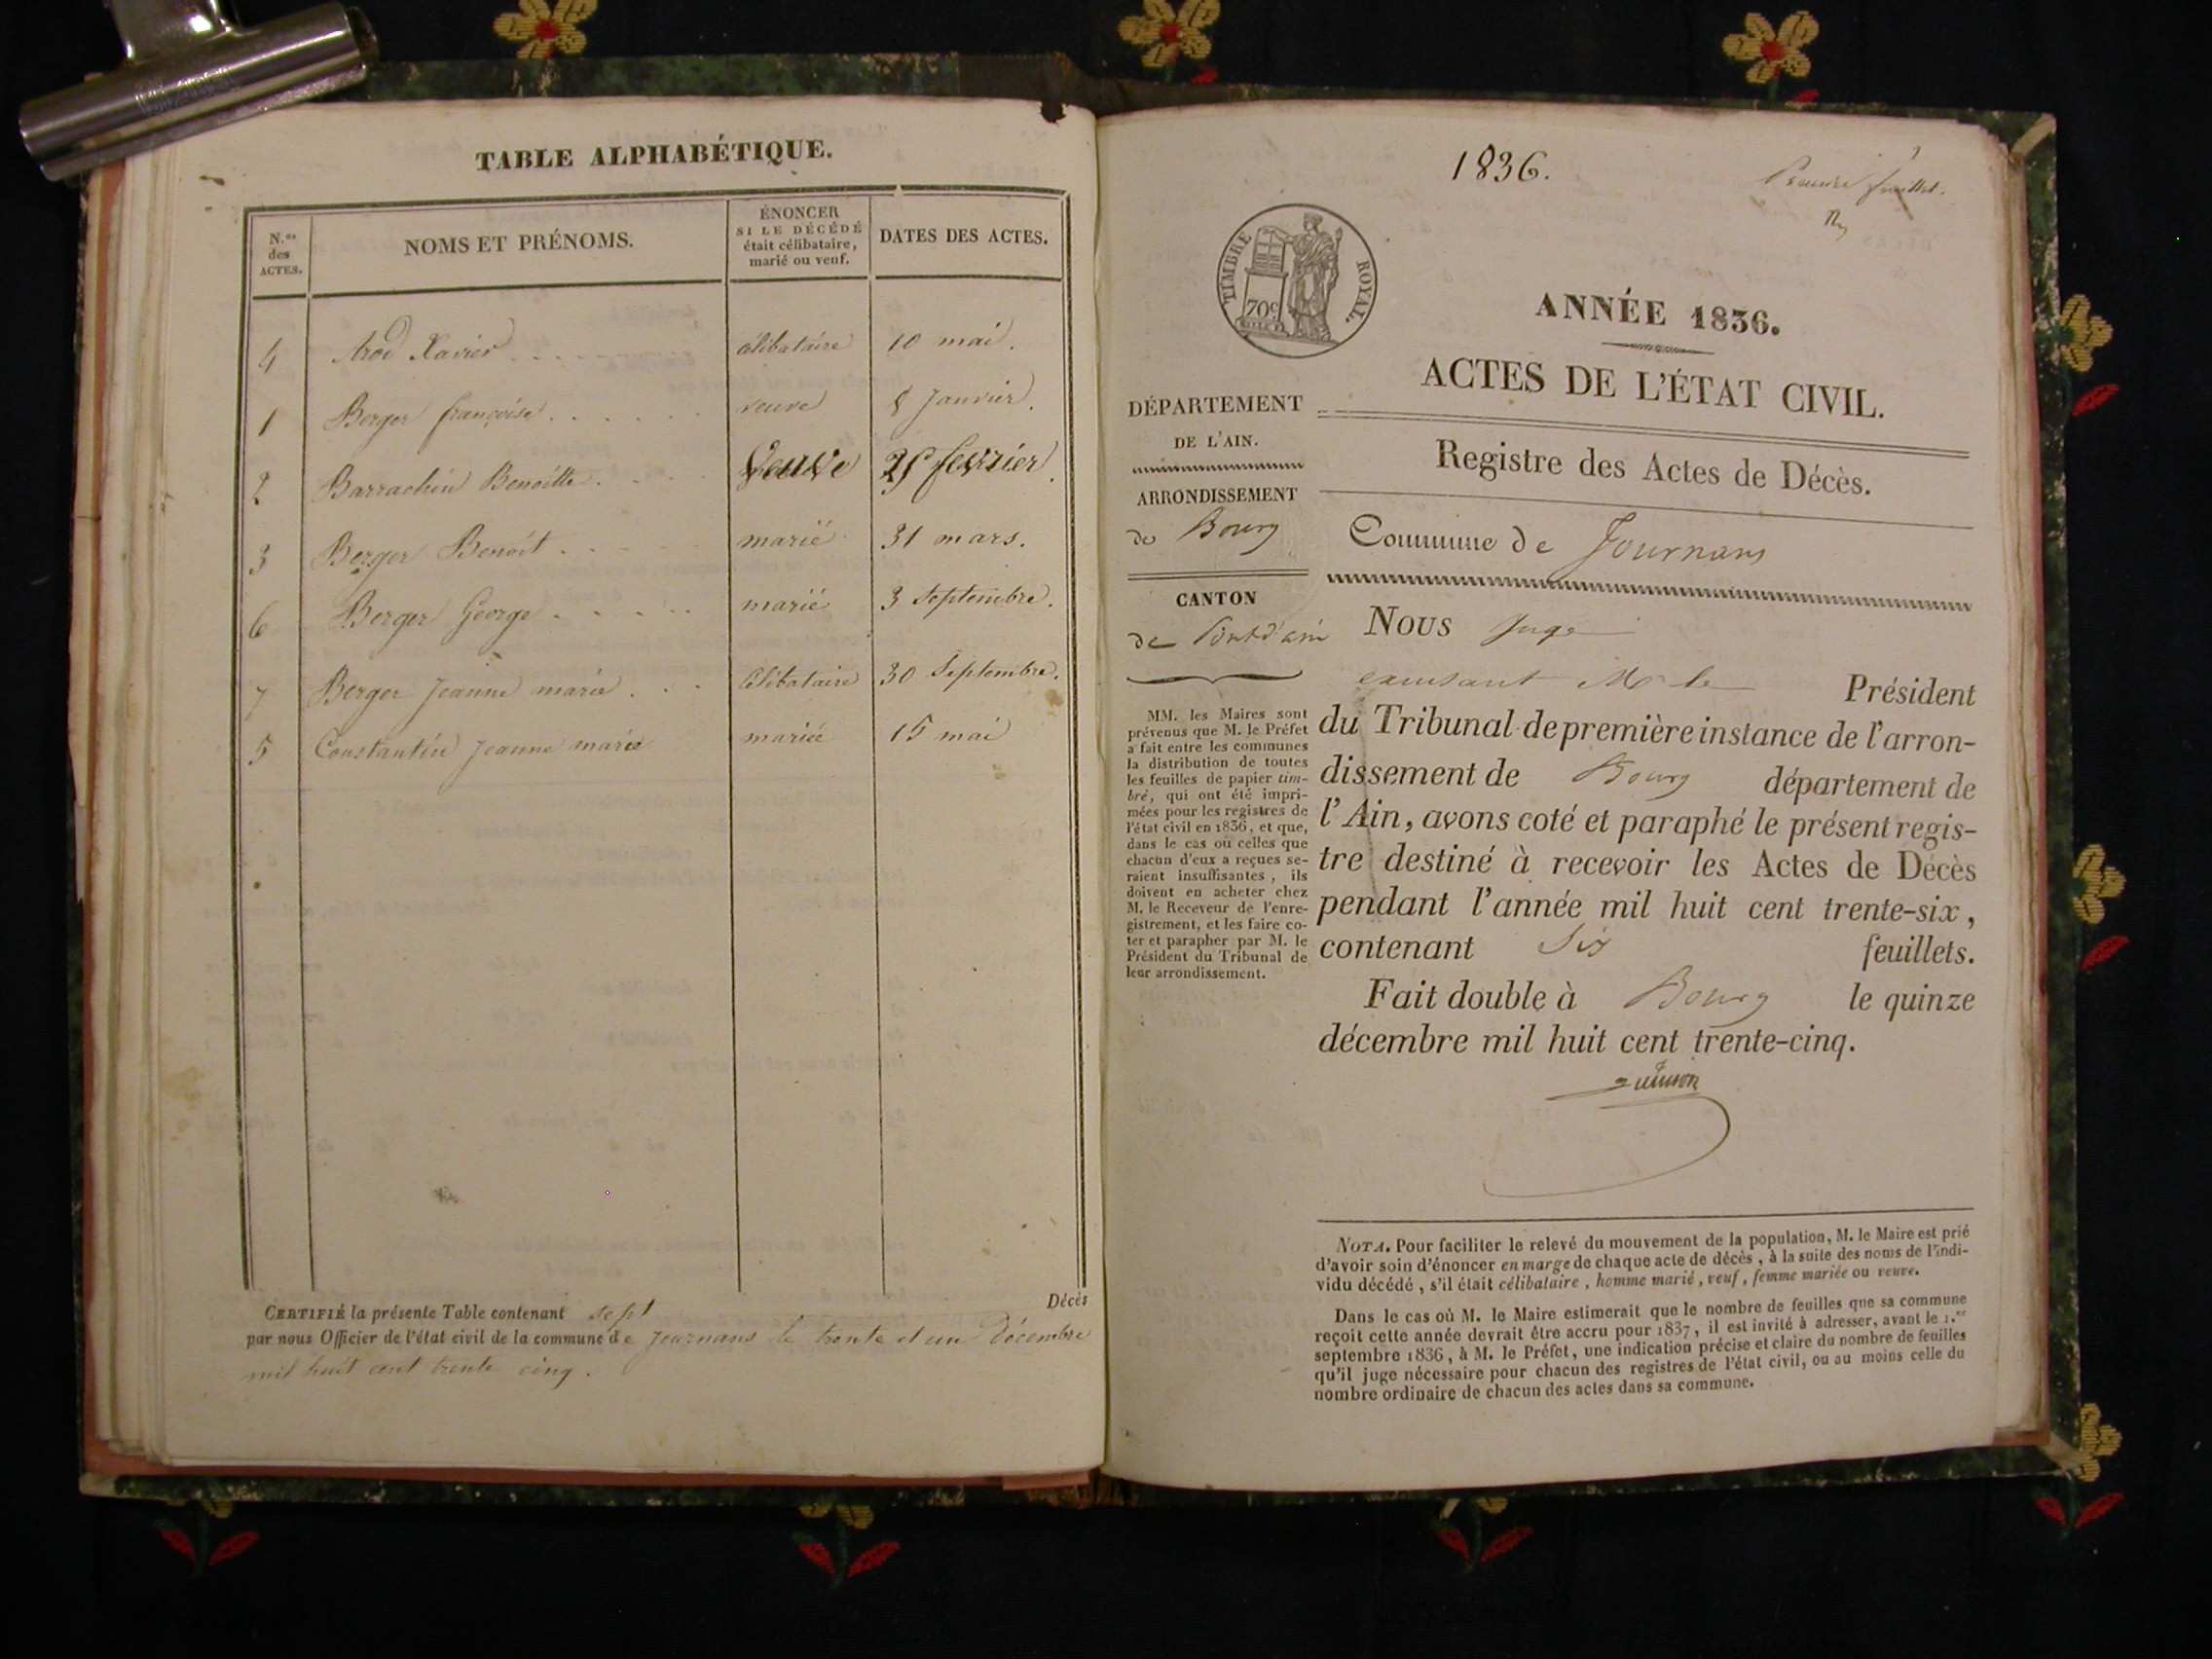 TABLE ALPHABÉTIQUE.
N.os des ACTES.
NOMS ET PRÉNOMS.
ÉNONCER SI LE DÉCÉDÉ était célibataire, marié ou veuf.
DATES DES ACTES.
4 Xavier célibataire 10 mai.
1 Berger françoise veuve 8 Janvier.
2 Barrachin Benoitte veuve 25 fevrier.
3 Berger Benoît marié 31 mars.
6 Berger George marié 3 Septembre.
7 Berger Jeanne marie célibataire 30 Septembre.
5 Constantin Jeanne marie mariée 15 mai
CERTIFIÉ la présente Table contenant sept Décès
par nous Officier de l'état civil de la commune de Journans le trente et un Décembre
mil huit cent trente cinq.
1836.
Premier feuillet.
TIMBRE ROYAL.
70c
ANNÉE 1836.
ACTES DE L'ÉTAT CIVIL.
Registre des Actes de Décès.
DÉPARTEMENT
DE L'AIN.
ARRONDISSEMENT
de Bourg
CANTON
de Pont d'ain
MM. les Maires sont
prévenus que M. le Préfet
a fait entre les communes
la distribution de toutes
les feuilles de papier tim-
bré, qui ont été impri-
mées pour les registres de
l'état civil en 1836, et que,
dans le cas où celles que
chacun d'eux a reçues se-
raient insuffisantes, ils
doivent en acheter chez
M. le Receveur de l'enre-
gistrement, et les faire co-
ter et parapher par M. le
Président du Tribunal de
leur arrondissement.
Commune de Journans
Nous Juge
M. le Président
du Tribunal de première instance de l'arron-
dissement de Bourg département de
l'Ain, avons coté et paraphé le présent regis-
tre destiné à recevoir les Actes de Décès
pendant l'année mil huit cent trente-six,
contenant Six feuillets.
Fait double à Bourg le quinze
décembre mil huit cent trente-cinq.
NOTA. Pour faciliter le relevé du mouvement de la population, M. le Maire est prié
d'avoir soin d'énoncer en marge de chaque acte de décès, à la suite des noms de l'indi-
vidu décédé, s'il était célibataire, homme marié, veuf, femme mariée ou veuve.
Dans le cas où M. le Maire estimerait que le nombre de feuilles que sa commune
reçoit cette année devrait être accru pour 1837, il est invité à adresser, avant le 1.er
septembre 1836, à M. le Préfet, une indication précise et claire du nombre de feuilles
qu'il juge nécessaire pour chacun des registres de l'état civil, ou au moins celle du
nombre ordinaire de chacun des actes dans sa commune.